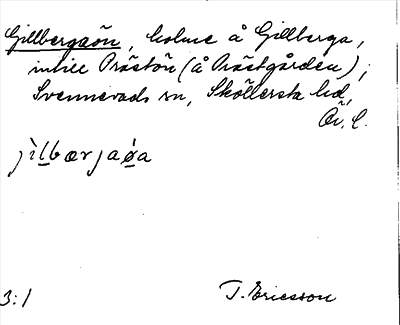 Gillbergaön, holme å Gillberga,
intill Prästön (å Prästgården);
Svennevads sn, Sköllersta hd,
Ör. l.
jìlbærjaøa
3:1
T. Ericsson